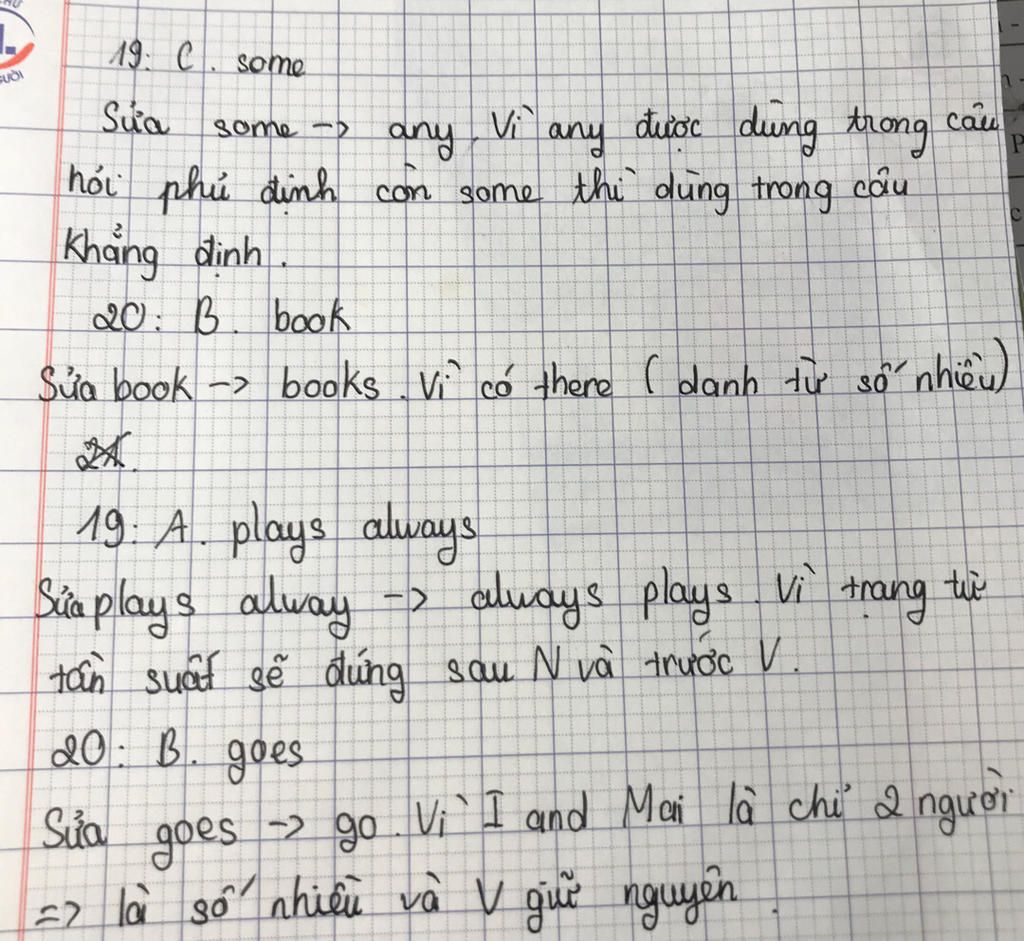 19: C. some
Sửa some -> any. Vì any được dùng trong câu
hỏi phủ định còn some thì dùng trong câu
khẳng định.
20: B. book
Sửa book -> books. Vì có there (danh từ số nhiều)
19: A. plays always
Sửa plays alway -> always plays. Vì trạng từ
tần suất sẽ đứng sau N và trước V.
20: B. goes
Sửa goes -> go. Vì I and Mai là chỉ 2 người
=> là số nhiều và V giữ nguyên.